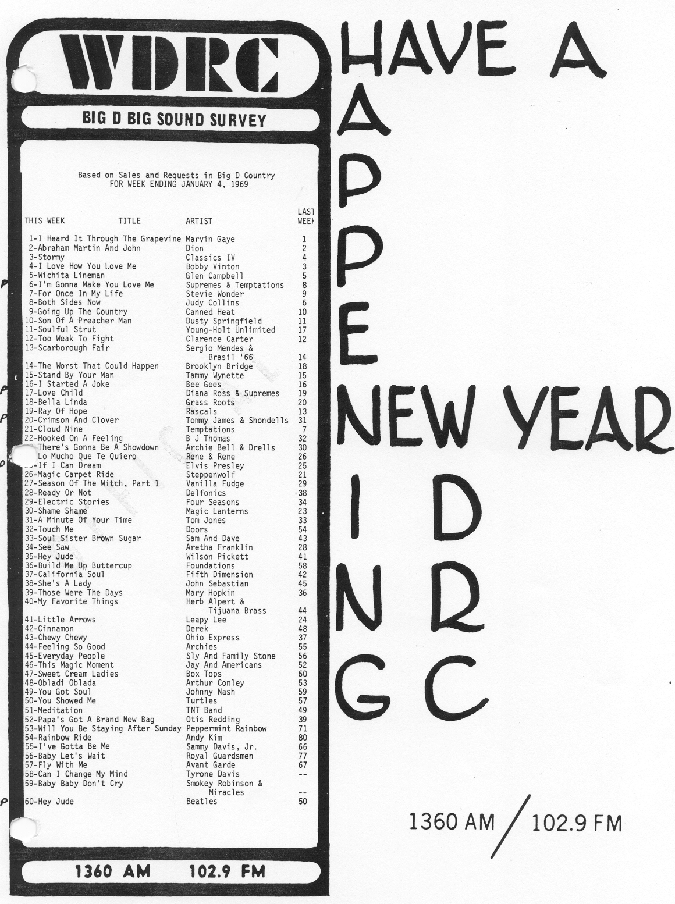 WDRC
BIG D BIG SOUND SURVEY
Based on Sales and Requests in Big D Country
FOR WEEK ENDING JANUARY 4, 1969
LAST
THIS WEEK TITLE ARTIST WEEK
1-I Heard It Through The Grapevine Marvin Gaye 1
2-Abraham Martin And John Dion 2
3-Stormy Classics IV 4
4-I Love How You Love Me Bobby Vinton 3
5-Wichita Lineman Glen Campbell 5
P 6-I'm Gonna Make You Love Me Supremes & Temptations 8
7-For Once In My Life Stevie Wonder 9
8-Both Sides Now Judy Collins 6
9-Going Up The Country Canned Heat 10
10-Son Of A Preacher Man Dusty Springfield 11
11-Soulful Strut Young-Holt Unlimited 17
12-Too Weak To Fight Clarence Carter 12
13-Scarborough Fair Sergio Mendes &
Brasil '66 14
14-The Worst That Could Happen Brooklyn Bridge 18
15-Stand By Your Man Tammy Wynette 15
16-I Started A Joke Bee Gees 16
P 17-Love Child Diana Ross & Supremes 19
18-Bella Linda Grass Roots 20
19-Ray Of Hope Rascals 13
P 20-Crimson And Clover Tommy James & Shondells 31
21-Cloud Nine Temptations 7
22-Hooked On A Feeling B J Thomas 32
There's Gonna Be A Showdown Archie Bell & Drells 30
Lo Mucho Que Te Quiero Rene & Rene 26
-If I Can Dream Elvis Presley 25
26-Magic Carpet Ride Steppenwolf 21
27-Season Of The Witch, Part 1 Vanilla Fudge 29
28-Ready Or Not Delfonics 38
29-Electric Stories Four Seasons 34
30-Shame Shame Magic Lanterns 23
31-A Minute Of Your Time Tom Jones 33
32-Touch Me Doors 54
33-Soul Sister Brown Sugar Sam And Dave 43
34-See Saw Aretha Franklin 28
35-Hey Jude Wilson Pickett 41
36-Build Me Up Buttercup Foundations 58
37-California Soul Fifth Dimension 42
38-She's A Lady John Sebastian 45
39-Those Were The Days Mary Hopkin 36
40-My Favorite Things Herb Alpert &
Tijuana Brass 44
41-Little Arrows Leapy Lee 24
42-Cinnamon Derek 48
43-Chewy Chewy Ohio Express 37
44-Feeling So Good Archies 55
45-Everyday People Sly And Family Stone 56
46-This Magic Moment Jay And Americans 52
47-Sweet Cream Ladies Box Tops 60
48-Obladi Oblada Arthur Conley 53
49-You Got Soul Johnny Nash 59
50-You Showed Me Turtles 57
51-Meditation TNT Band 49
52-Papa's Got A Brand New Bag Otis Redding 39
53-Will You Be Staying After Sunday Peppermint Rainbow 71
54-Rainbow Ride Andy Kim 80
55-I've Gotta Be Me Sammy Davis, Jr. 66
56-Baby Let's Wait Royal Guardsmen 77
57-Fly With Me Avant Garde 67
58-Can I Change My Mind Tyrone Davis --
59-Baby Baby Don't Cry Smokey Robinson &
Miracles --
P 60-Hey Jude Beatles 50
1360 AM 102.9 FM
HAVE A
A
P
P
E
NEW YEAR
I D
N R
G C
1360 AM / 102.9 FM